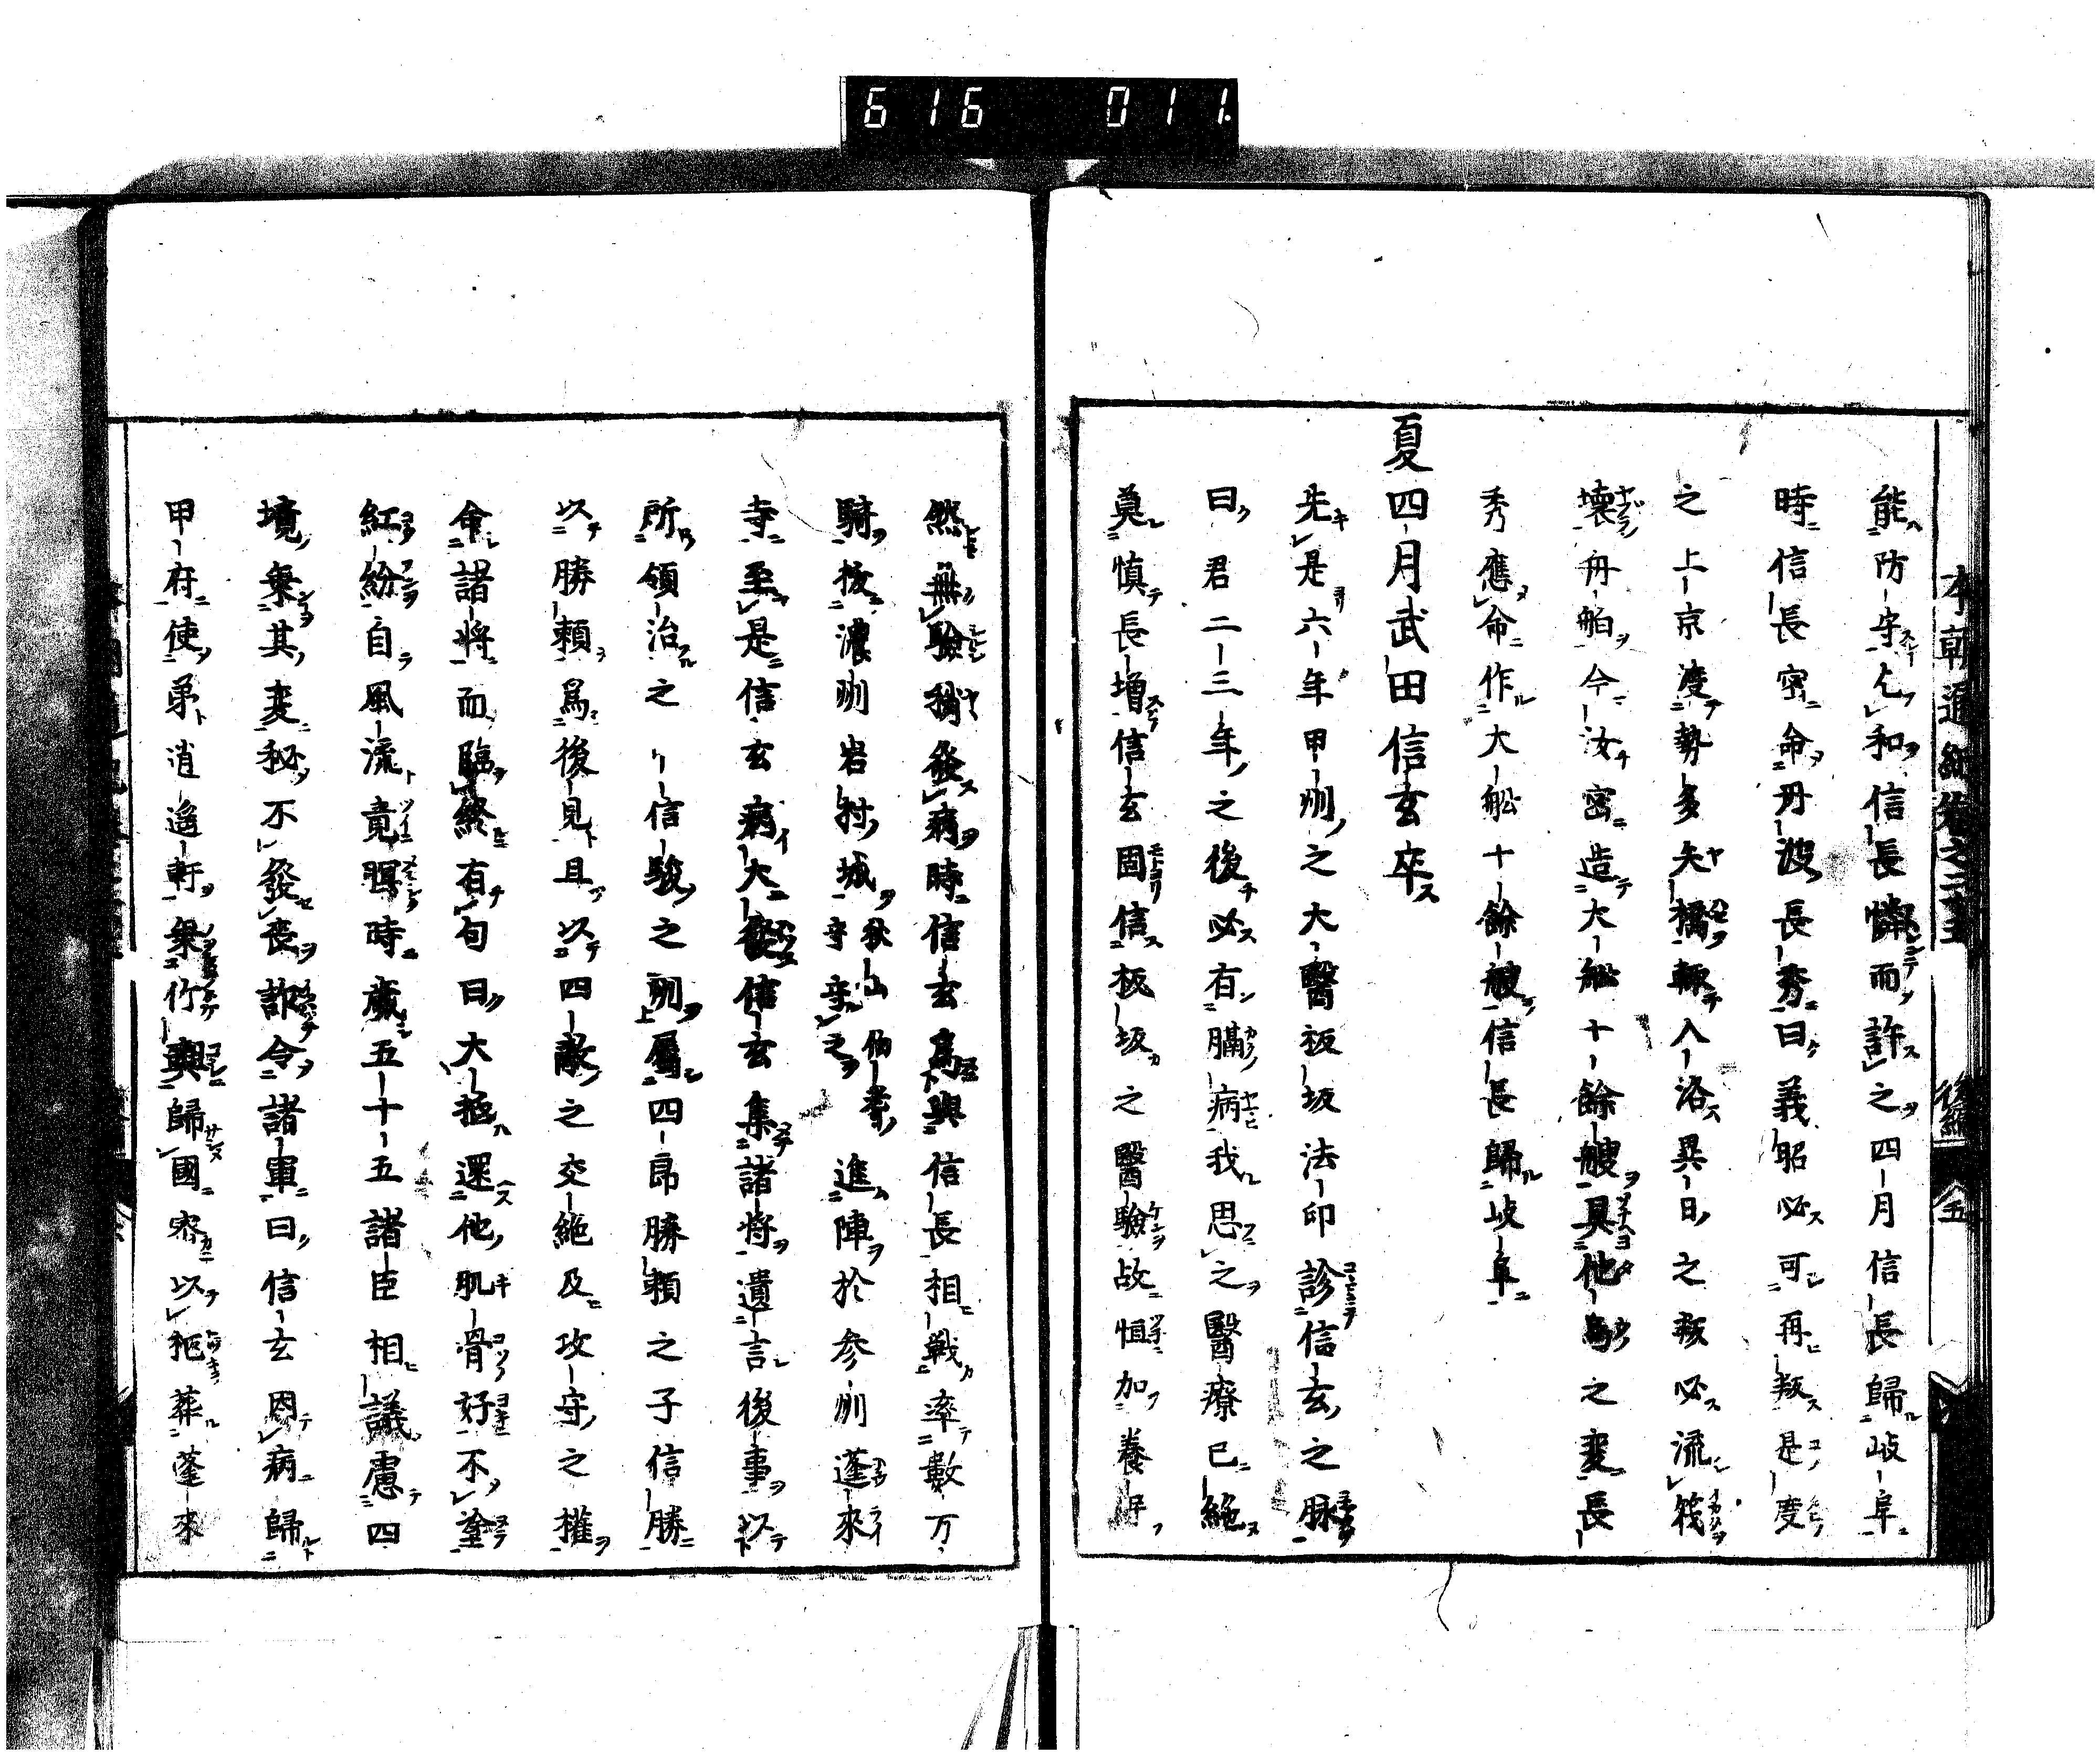 616 011.
本朝通紀卷之二十五 後編 五
能防守乞和信長憐而許之四月信長歸岐阜
時信長密命丹波長秀曰義昭必可再叛是度
之上京渡勢多矢橋輙入洛異日之叛必流筏
壊舟舩今汝密造大舩十餘艘具他島之変長
秀應命作大舩十餘艘信長歸岐阜
夏四月武田信玄卒
先是六年甲州之大醫板坂法印診信玄之脉
曰君二三年之後必有膈病我思之醫療已絶
奠慎長增信玄固信板坂之醫驗故恒加養
然無驗稱發病時信玄爲與信長相戰率數万
騎拔濃州岩村城 秋山伯耆守守之 進陣於参州蓬來
寺至是信玄病大發信玄集諸将遺言後事以
所領治之信駿之州屬四郎勝頼之子信勝
以勝頼爲後見且以四敵之交絶及攻守之權
命諸将而臨終有句曰大抵還他肌骨好不塗
紅紛自風流竟瞑時歳五十五諸臣相議慮四
境棄其変秘不發喪詐令諸軍曰信玄因病歸
甲府使弟逍遥軒乗竹輿歸國密以柩葬蓬來